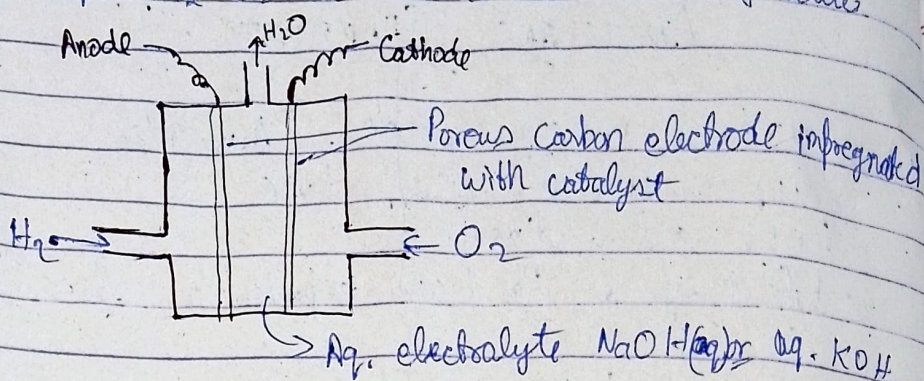 Anode
H2O
Cathode
Porous Carbon electrode impregnated
with catalyst
H2
O2
Aq. electralyte NaOH(aq)or aq. KOH